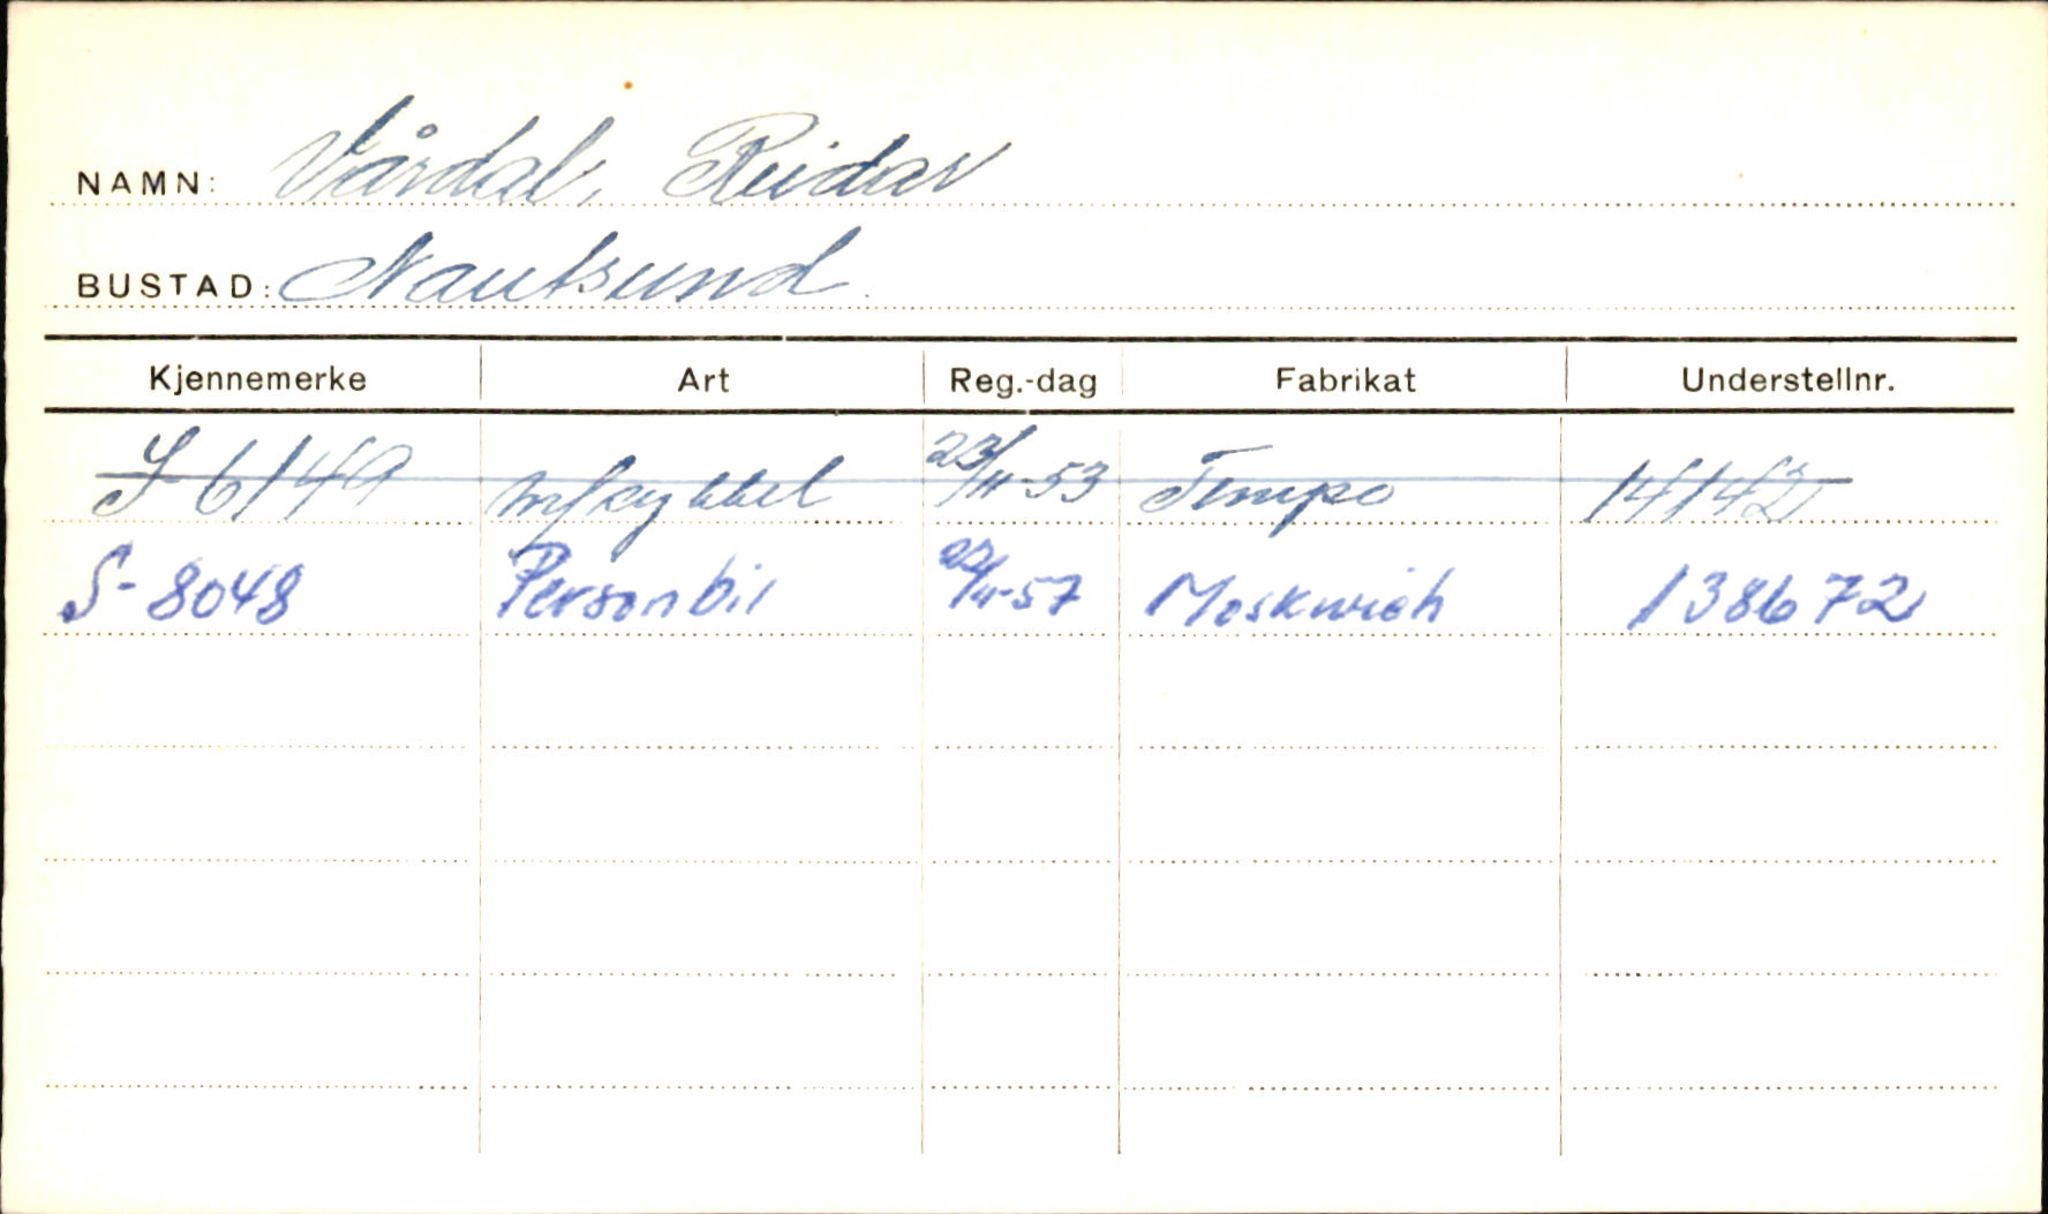 NAMN: Vårdal, Reidar
BUSTAD: Nautsund
Kjennemerke Art Reg.-dag Fabrikat Understellnr.
S-6149 m/sykkel 23/11-53 Tempo 14142
S-8048 Personbil 22/11-57 Moskwich 138672